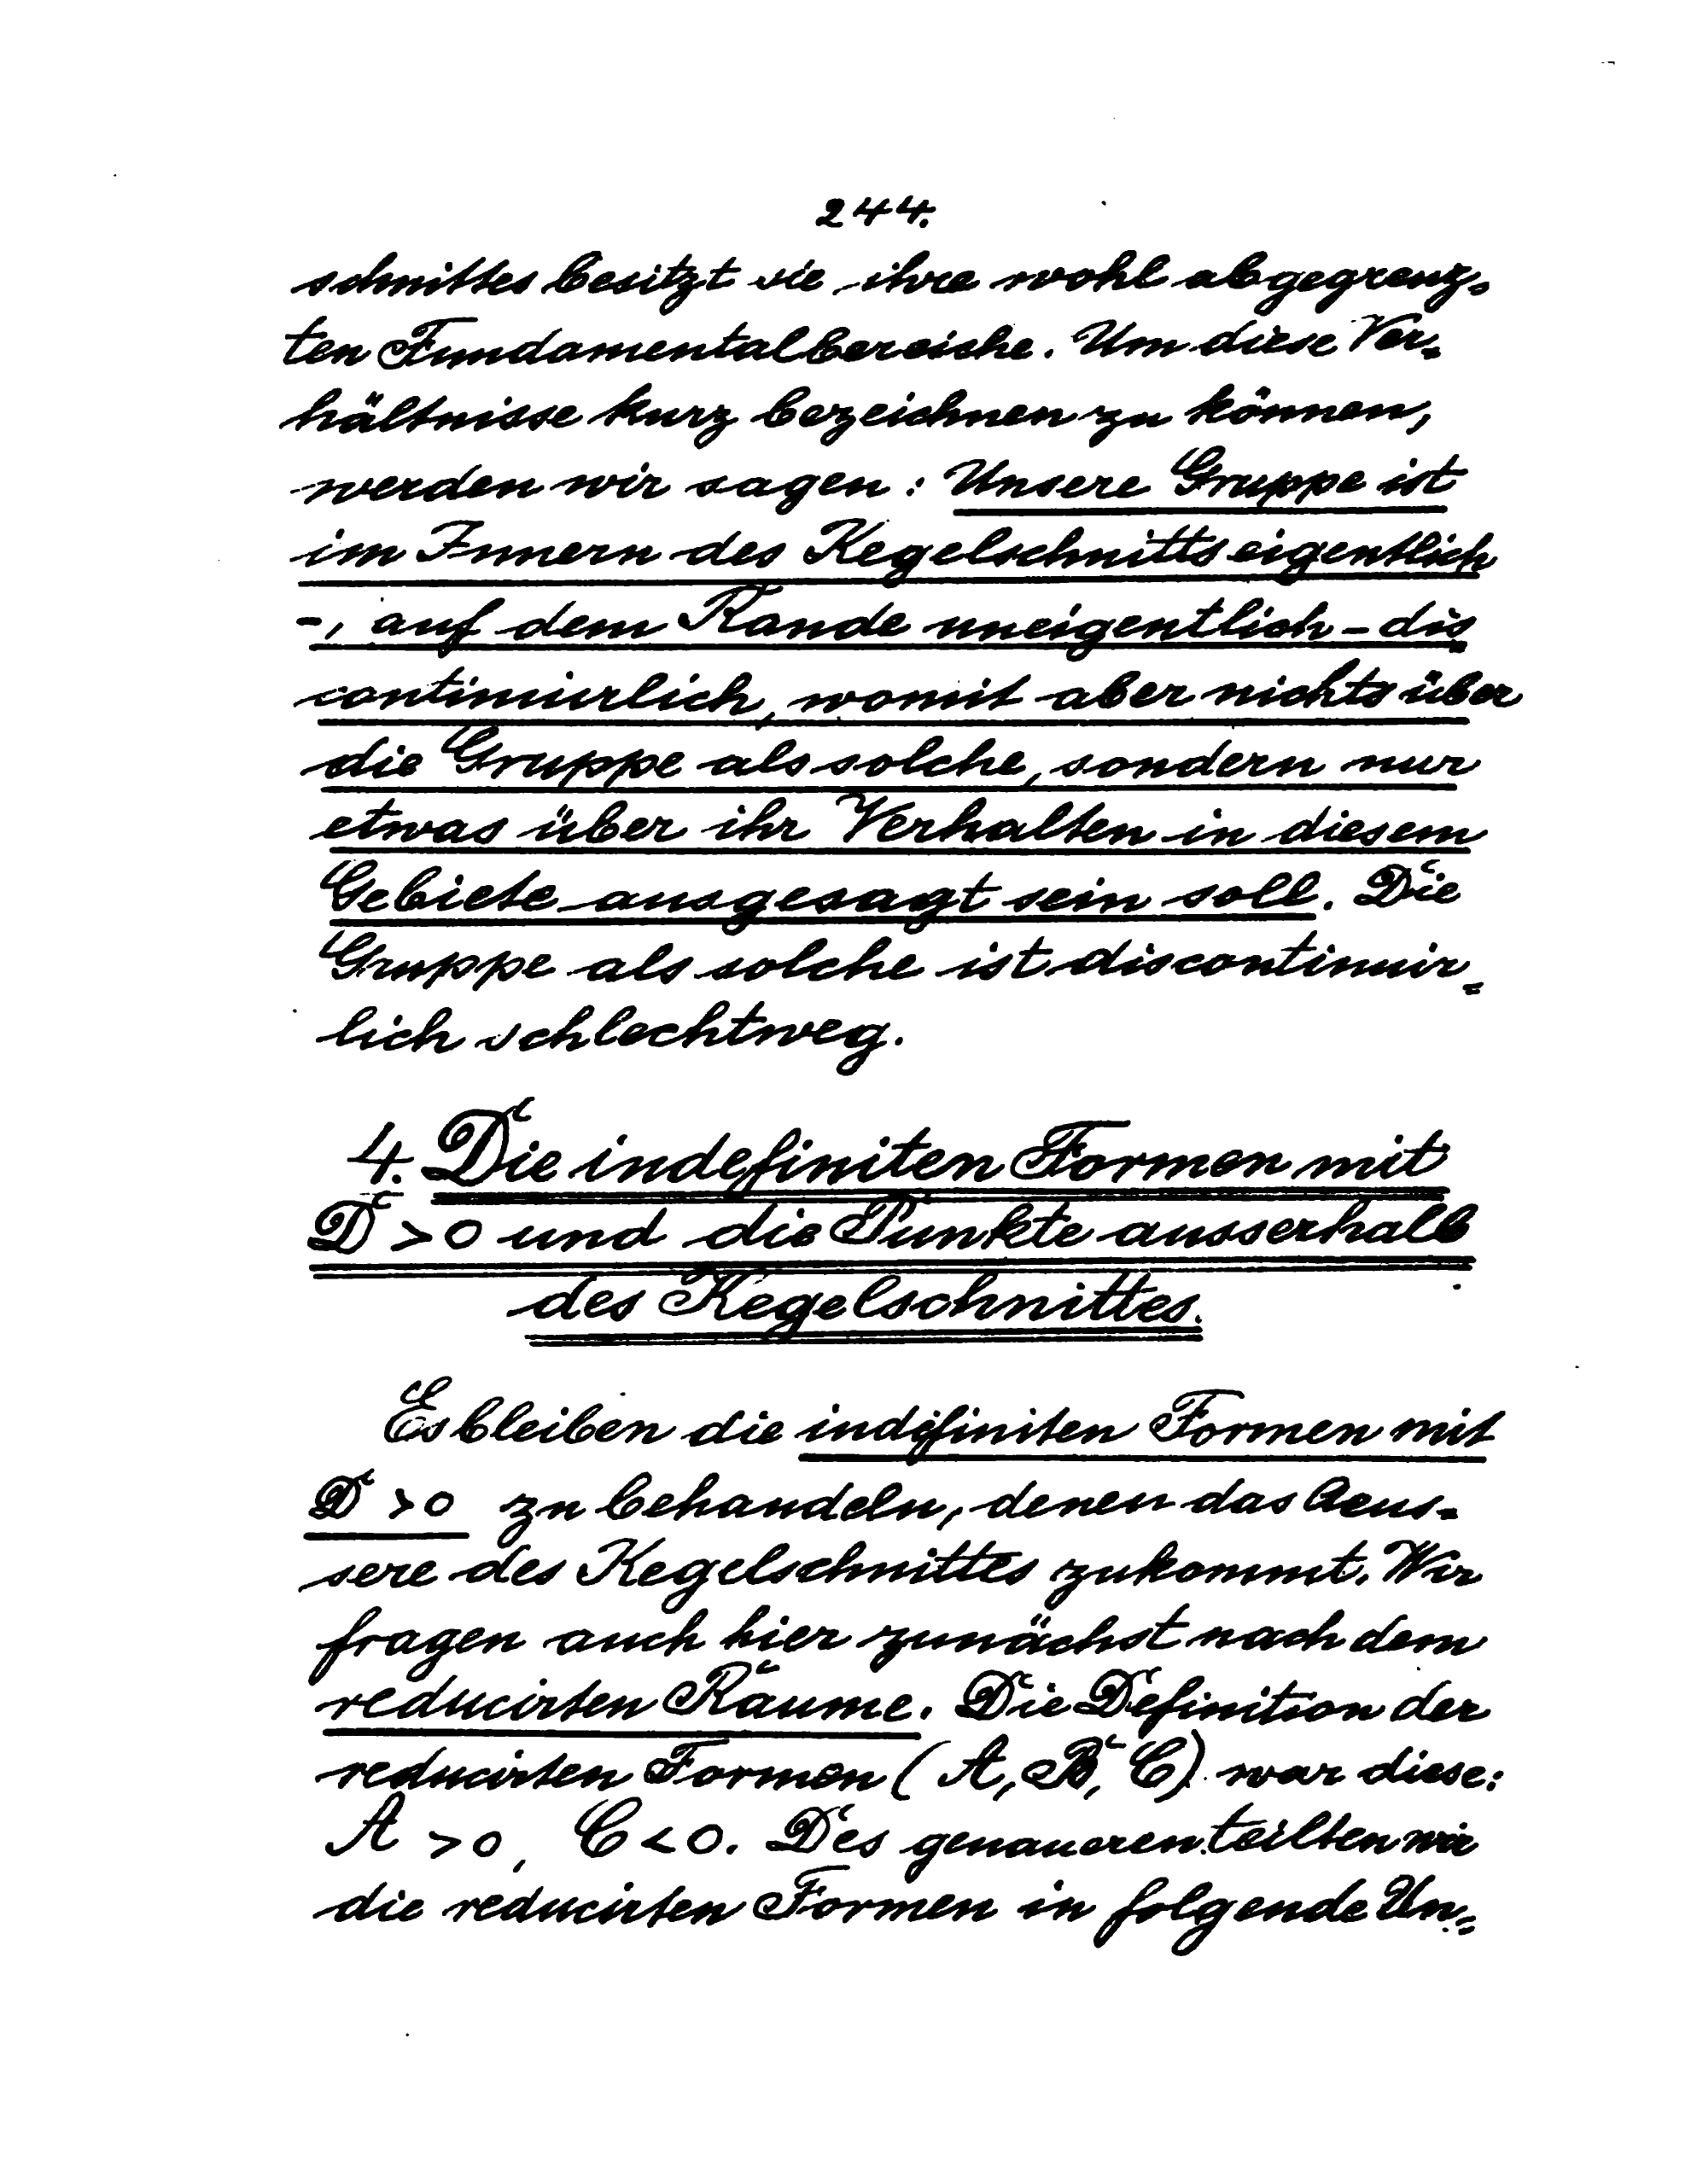 244.
schnittes besitzt sie ihre wohl abgegrenz-
ten Fundamentalbereiche. Um diese Ver-
hältnisse kurz bezeichnen zu können,
werden wir sagen: Unsere Gruppe ist
im Innern des Kegelschnitts eigentlich
-, auf dem Rande uneigentlich - dis
continuirlich, womit aber nichts über
die Gruppe als solche, sondern nur
etwas über ihr Verhalten in diesem
Gebiete ausgesagt sein soll. Die
Gruppe als solche ist discontinuir=
lich schlechtweg.
4. Die indefiniten Formen mit
D > 0 und die Punkte ausserhalb
des Kegelschnittes.
Es bleiben die indefiniten Formen mit
D > 0 zu behandeln, denen das Aeus-
sere des Kegelschnittes zukommt. Wir
fragen auch hier zunächst nach dem
reducirten Raume. Die Definition der
reducirten Formen (A, B, C) war diese:
A > 0, C < 0. Des genaueren teilten wir
die reducirten Formen in folgende Un=